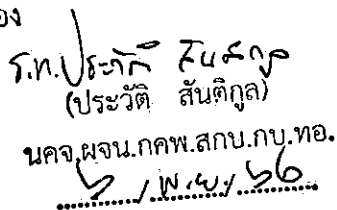 อง
ร.ท.ประวัติ สันติกูล
(ประวัติ สันติกูล)
นคจ.ผจน.กคพ.สกบ.กบ.ทอ.
๖ / พ.ย. / ๖๖